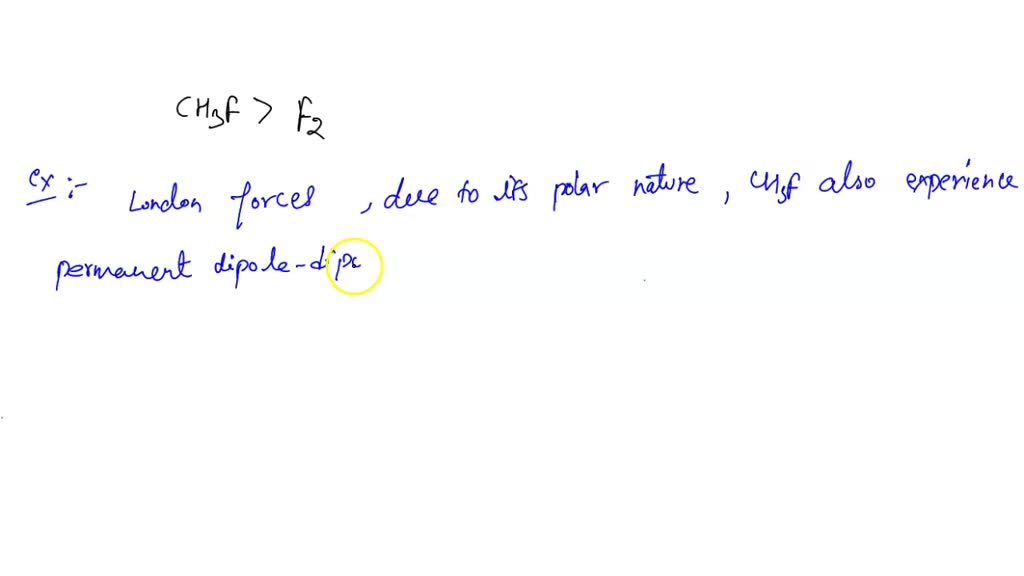 CH3F > F2
ex :- London forces , due to its polar nature , CH3F also experience
permanent dipole-dipo